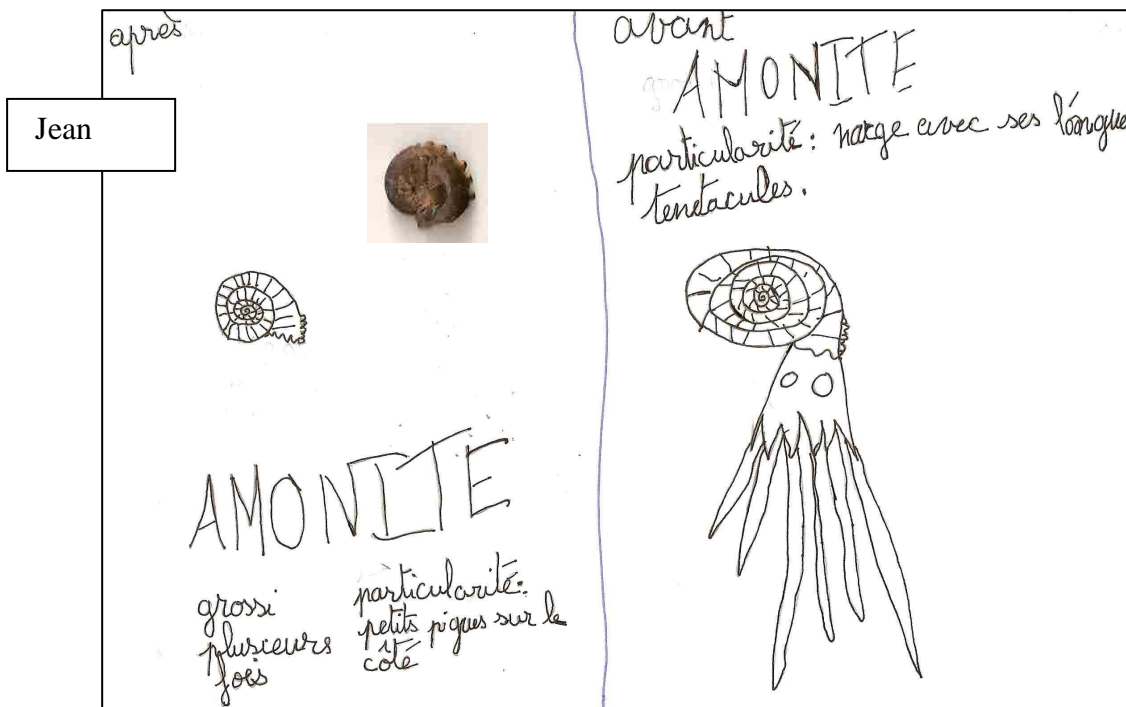 après
Jean
AMONITE
grossi
plusieurs
fois
particularité:
petits piques sur le
coté
avant
AMONITE
particularité: narge avec ses longue
tentacules.